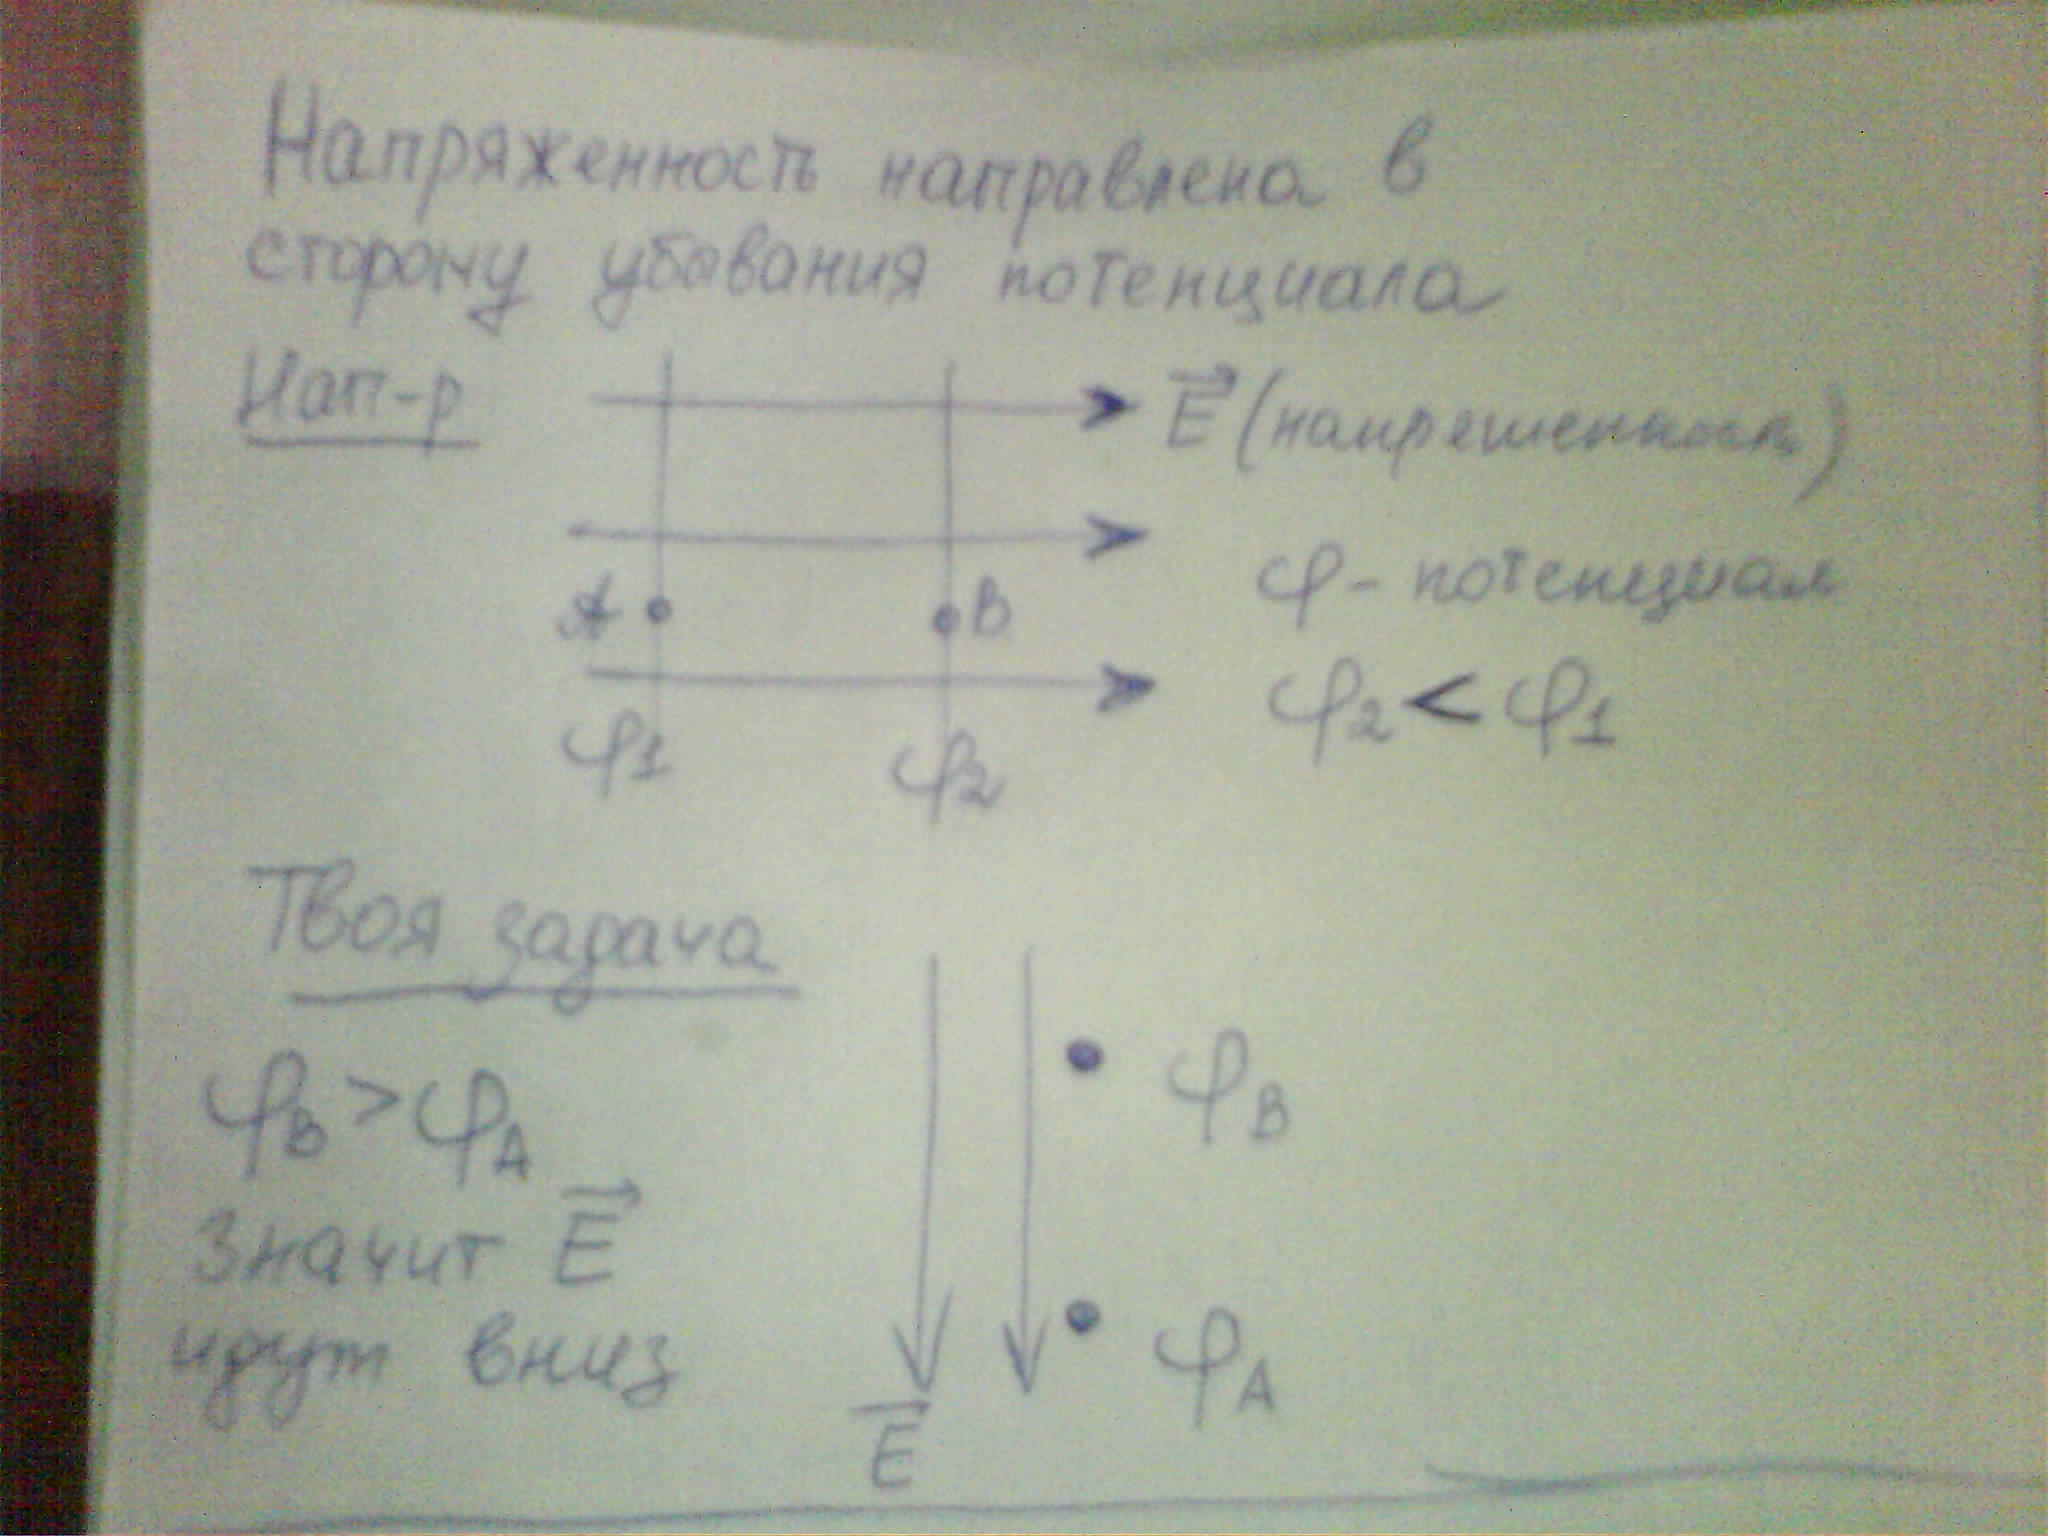 Напряженность направлена в
сторону убывания потенциала
Нап-р
E (напряшенность)
φ - потенциал
A
B
φ2 < φ1
φ1
φ2
Твоя задача
φB > φA
φB
Значит E
идут вниз
φA
E